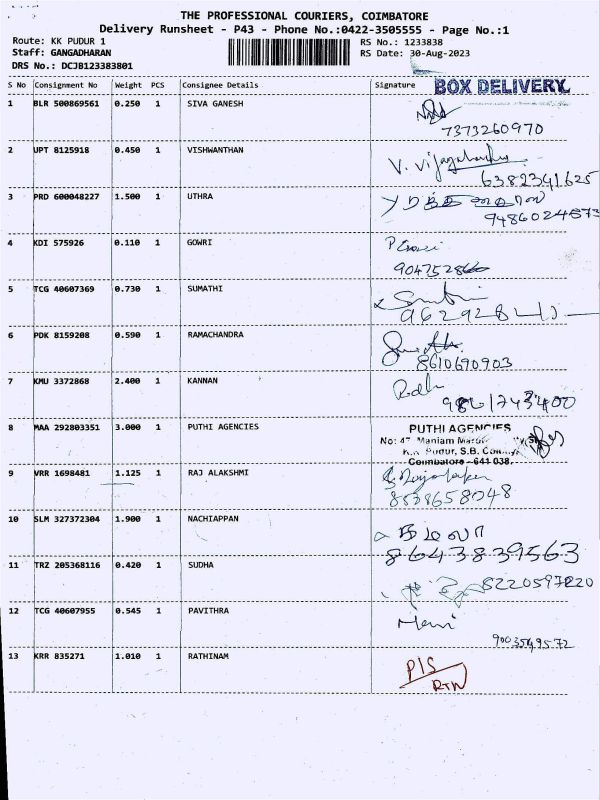 THE PROFESSIONAL COURIERS, COIMBATORE
Delivery Runsheet - P43 - Phone No.:0422-3505555 - Page No.:1
Route: KK PUDUR 1 RS No.: 1233838
Staff: GANGADHARAN RS Date: 30-Aug-2023
DRS No.: DCJB123383801
S No Consignment No Weight PCS Consignee Details Signature BOX DELIVERY
1 BLR 500869561 0.250 1 SIVA GANESH
7373260970
2 UPT 8125918 0.450 1 VISHWANTHAN
6382341625
3 PRD 600048227 1.500 1 UTHRA
4 KDI 575926 0.110 1 GOWRI
5 TCG 40607369 0.730 1 SUMATHI
6 PDK 8159208 0.590 1 RAMACHANDRA
8610690903
7 KMU 3372868 2.400 1 KANNAN
8 MAA 292803351 3.000 1 PUTHI AGENCIES PUTHI AGENCIES
No: 47 Maniam
K.K. Pudur, S.B. Colony
Coimbatore - 641 038.
9 VRR 1698481 1.125 1 RAJ ALAKSHMI
10 SLM 327372304 1.900 1 NACHIAPPAN
நிமலா
8643839563
11 TRZ 205368116 0.420 1 SUDHA
12 TCG 40607955 0.545 1 PAVITHRA
9003549572
13 KRR 835271 1.010 1 RATHINAM P/S
RTN